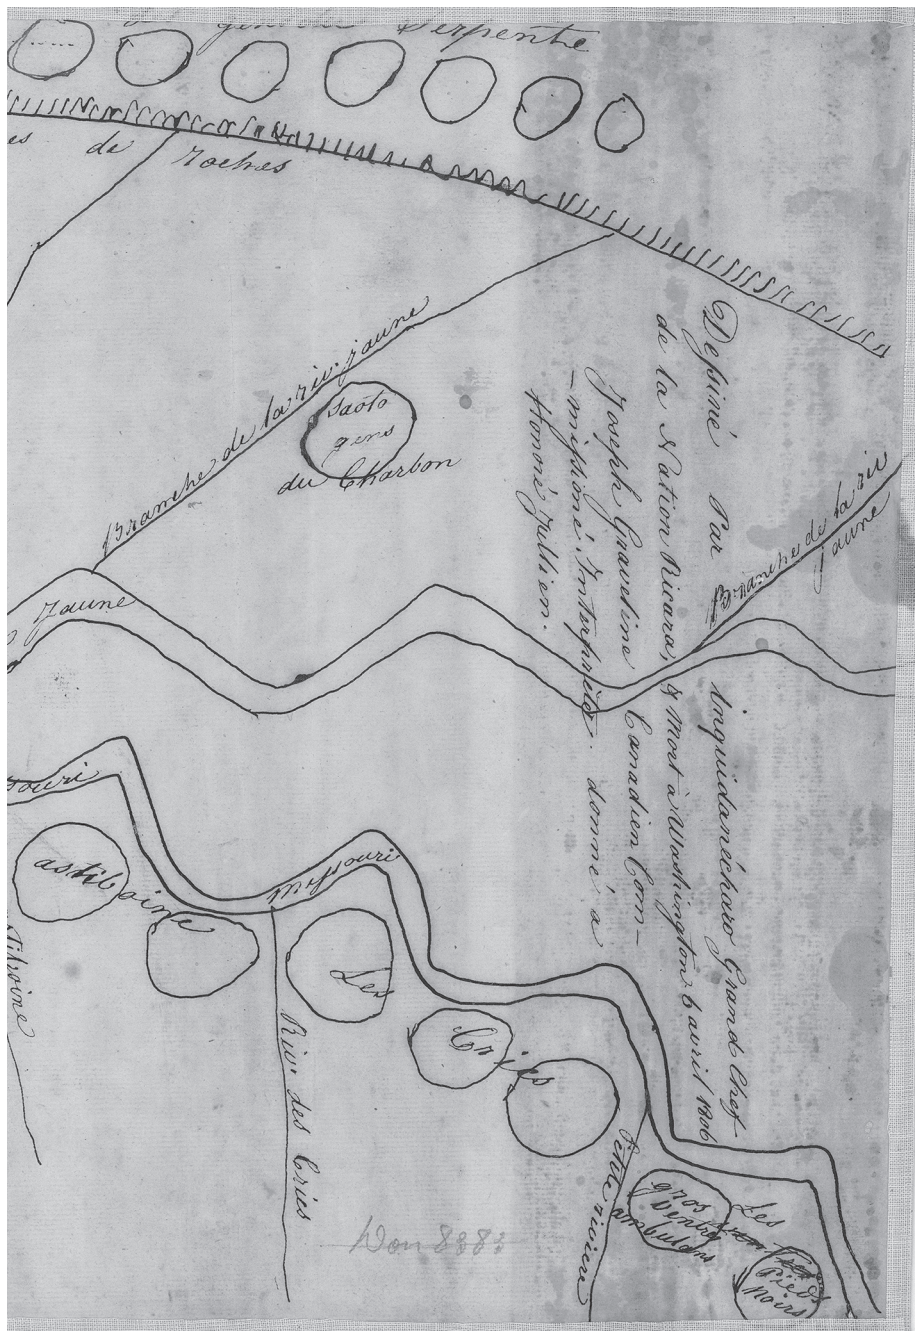 gens du Serpente
es de roches
Branche de la riv. jaune
Saoto
gens
du Charbon
Dessiné Par Inquidanécharo Grand Chef
de la Nation Ricara, & Mort à Washington 6 avril 1806
Joseph Graveline Canadien Com-
-missioné. Interprète. donné a
Honoré Jullien.
Branche de la riv
jaune
Jaune
souri
Missouri
astiboine
tiboine
Riv. des Cries
Les
Cries
Petite riviere
gros
ventre
ambulans
Les
Pieds
noirs
Don 8383